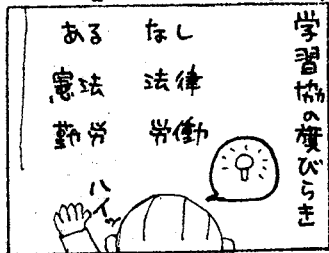 学習協の旗びらき
ある なし
憲法 法律
勤労 労働
ハイッ